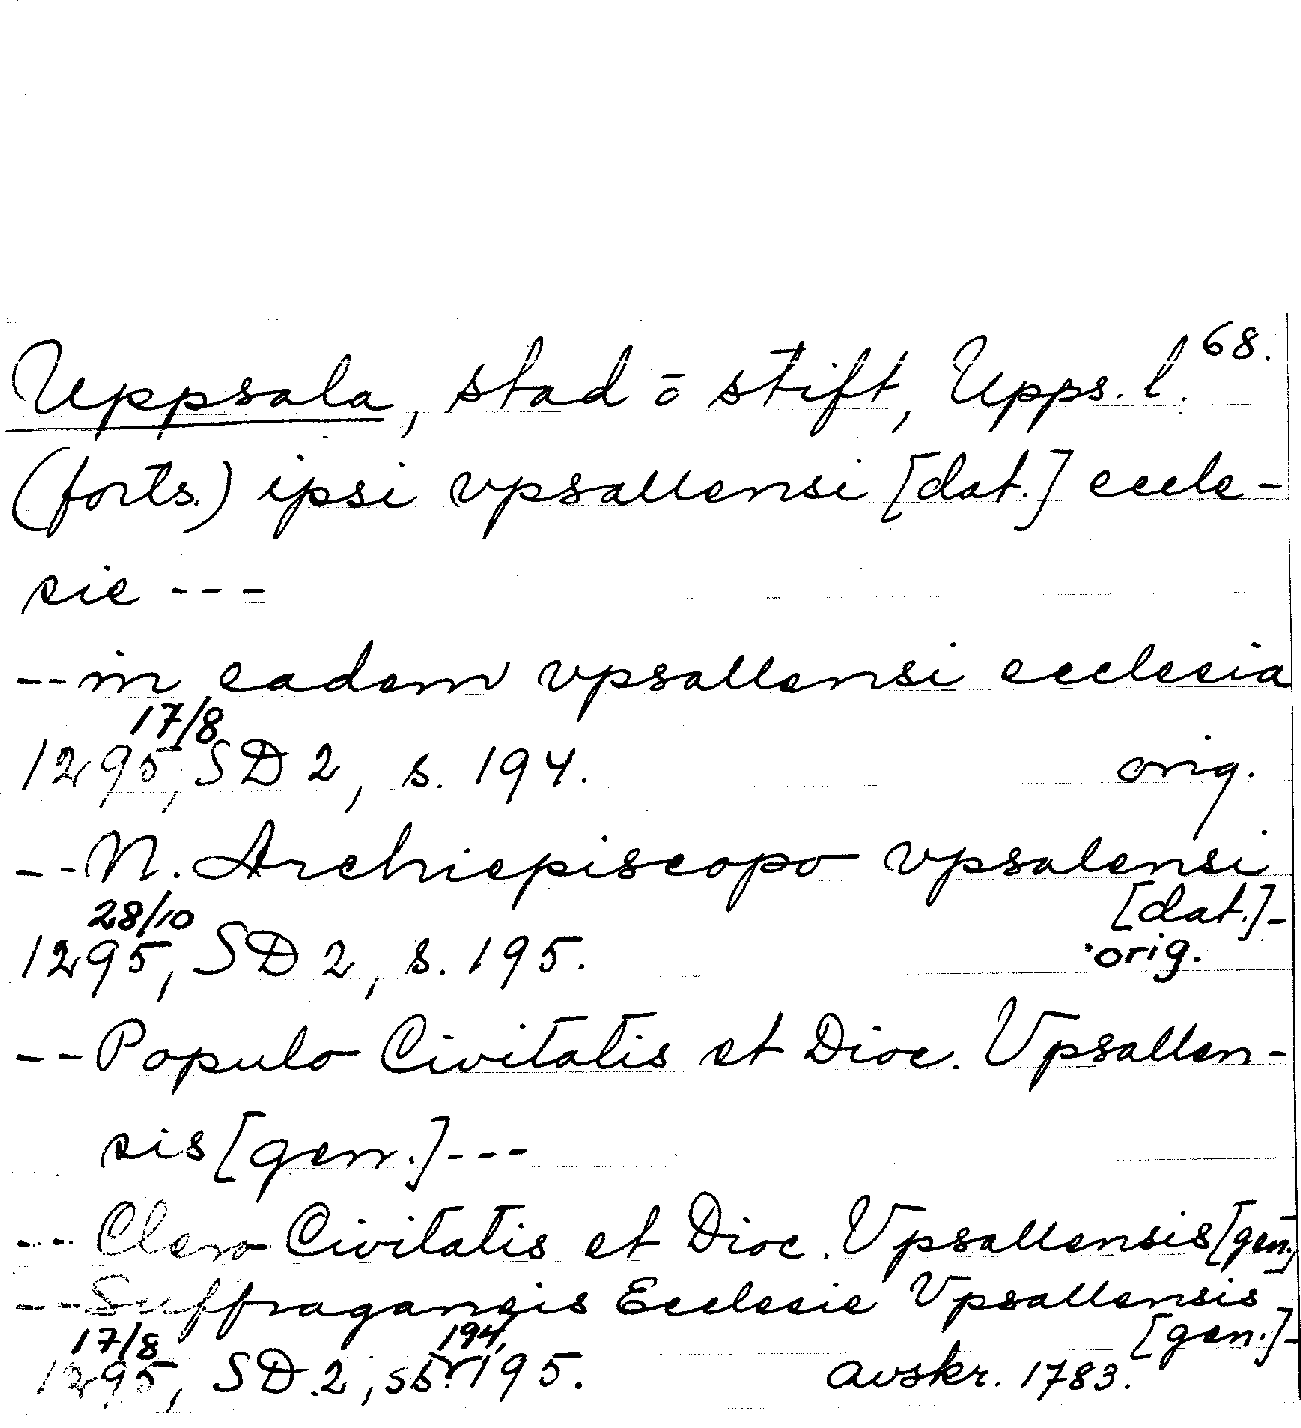 68.
Uppsala, stad ō stift, Upps. l.
(forts.) ipsi vpsallensi [dat.] eccle-
sie ---
-- in eadem vpsallensi ecclesia
17/8
1295, SD 2, s. 194. orig.
-- N. Archiepiscopo vpsalensi
[dat.]-
28/10
1295, SD 2, s. 195. orig.
-- Populo Civitatis et Dioc. Vpsallen-
sis [gen.] ---
-- Clero Civitatis et Dioc. Vpsallensis [gen.]
-- Suffraganeis Ecclesie Vpsallensis
[gen.]-
17/8 194,
1295, SD 2, s. 195. avskr. 1783.